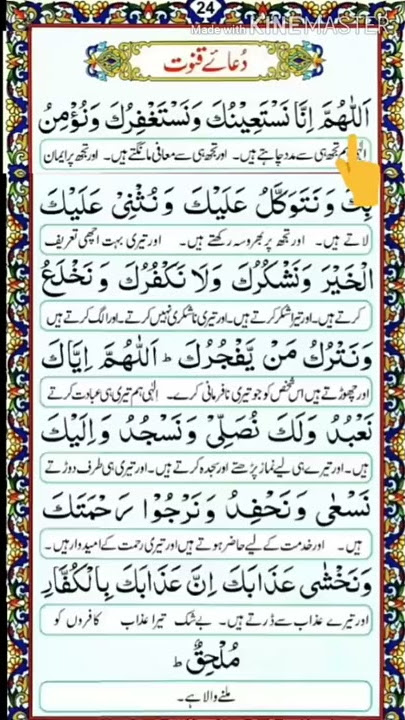 24
Made with KINEMASTER
دُعائے قنوت
اَللّٰهُمَّ اِنَّا نَسْتَعِيْنُكَ وَنَسْتَغْفِرُكَ وَنُؤْمِنُ
الٰہی ہم تجھ ہی سے مدد چاہتے ہیں۔ اور تجھ ہی سے معافی مانگتے ہیں۔ اور تجھ پر ایمان
بِكَ وَنَتَوَكَّلُ عَلَيْكَ وَنُثْنِىْ عَلَيْكَ
لاتے ہیں۔ اور تجھ پر بھروسہ رکھتے ہیں۔ اور تیری بہت اچھی تعریف
الْخَيْرَ وَنَشْكُرُكَ وَلَا نَكْفُرُكَ وَنَخْلَعُ
کرتے ہیں۔ اور تیرا شکر کرتے ہیں۔ اور تیری ناشکری نہیں کرتے۔ اور الگ کرتے ہیں
وَنَتْرُكُ مَنْ يَّفْجُرُكَ ط اَللّٰهُمَّ اِيَّاكَ
اور چھوڑتے ہیں اس شخص کو جو تیری نافرمانی کرے۔ الٰہی ہم تیری ہی عبادت کرتے
نَعْبُدُ وَلَكَ نُصَلِّىْ وَنَسْجُدُ وَاِلَيْكَ
ہیں۔ اور تیرے ہی لیے نماز پڑھتے اور سجدہ کرتے ہیں۔ اور تیری ہی طرف دوڑتے
نَسْعٰى وَنَحْفِدُ وَنَرْجُوْا رَحْمَتَكَ
ہیں۔ اور خدمت کے لیے حاضر ہوتے ہیں اور تیری رحمت کے امیدوار ہیں۔
وَنَخْشٰى عَذَابَكَ اِنَّ عَذَابَكَ بِالْكُفَّارِ
اور تیرے عذاب سے ڈرتے ہیں۔ بے شک تیرا عذاب کافروں کو
مُلْحِقٌ ط
ملنے والا ہے۔